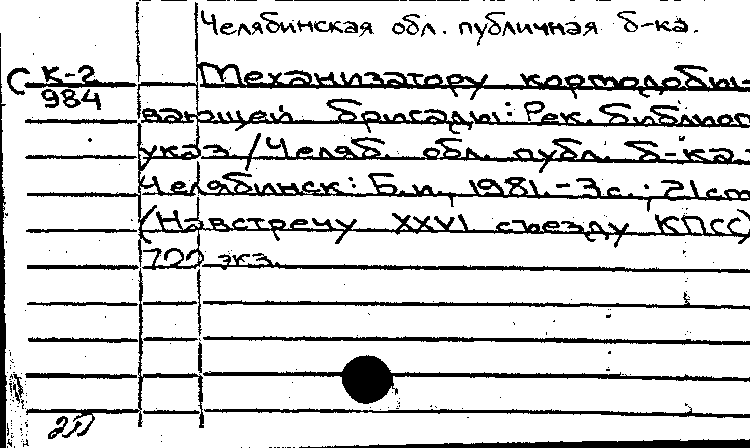 Челябинская обл. публичная б-ка.
С К-2
984
Механизатору кормодобы-
вающей бригады: Рек. библиог
указ. / Челяб. обл. публ. б-ка.-
Челябинск: Б.и., 1981.-3с.; 21см
(Навстречу XXVI съезду КПСС)
700 экз.